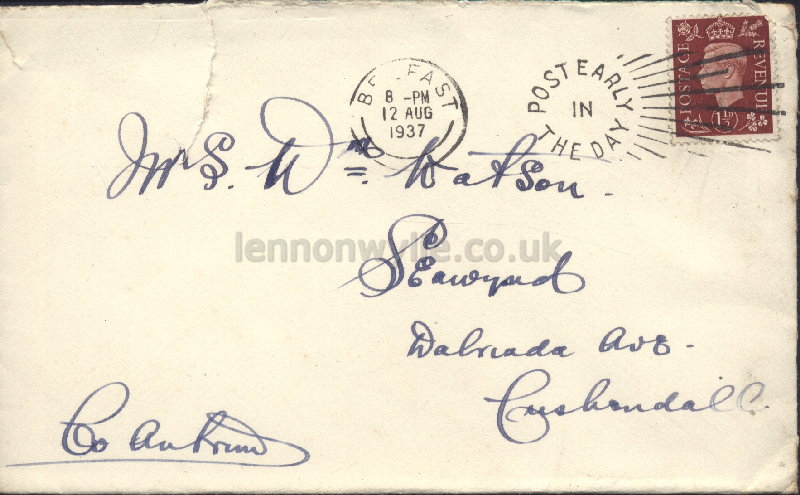 BELFAST
8 -PM
12 AUG
1937
POST EARLY
IN
THE DAY
POSTAGE
REVENUE
1½D
Mrs. Wm. Watson.
lennonwylie.co.uk
Seawynd
Dalriada Ave.
Cushendall
Co Antrim